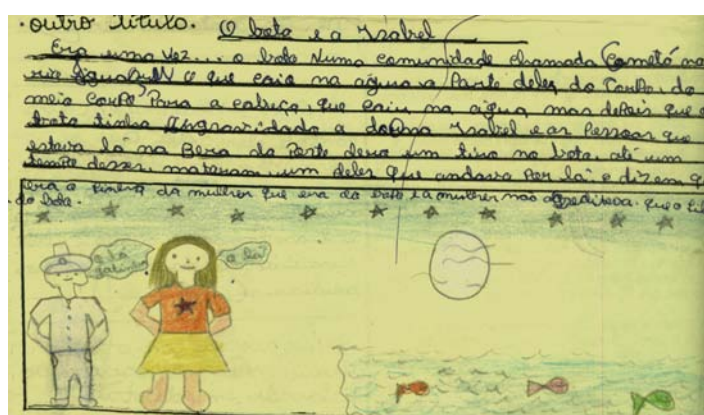 . outro título. O boto e a Isabel
Era uma vez... o boto numa comunidade chamada Cametá no
rio o que caio na água a Parte deles do CorPo, do
meio corPo, Para a cabeça, que caiu na água, mas dePois que o
boto tinha Ingravidado a dona Isabel e as Pessoas que
estava lá na Bera da Ponte deru um tiro no boto, até um
tempo desses, mataram um deles que andava Por lá e dizem q
era a da mulher que era do boto e a mulher não acreditava. que o fi
do boto.
o la gatinha
o la?